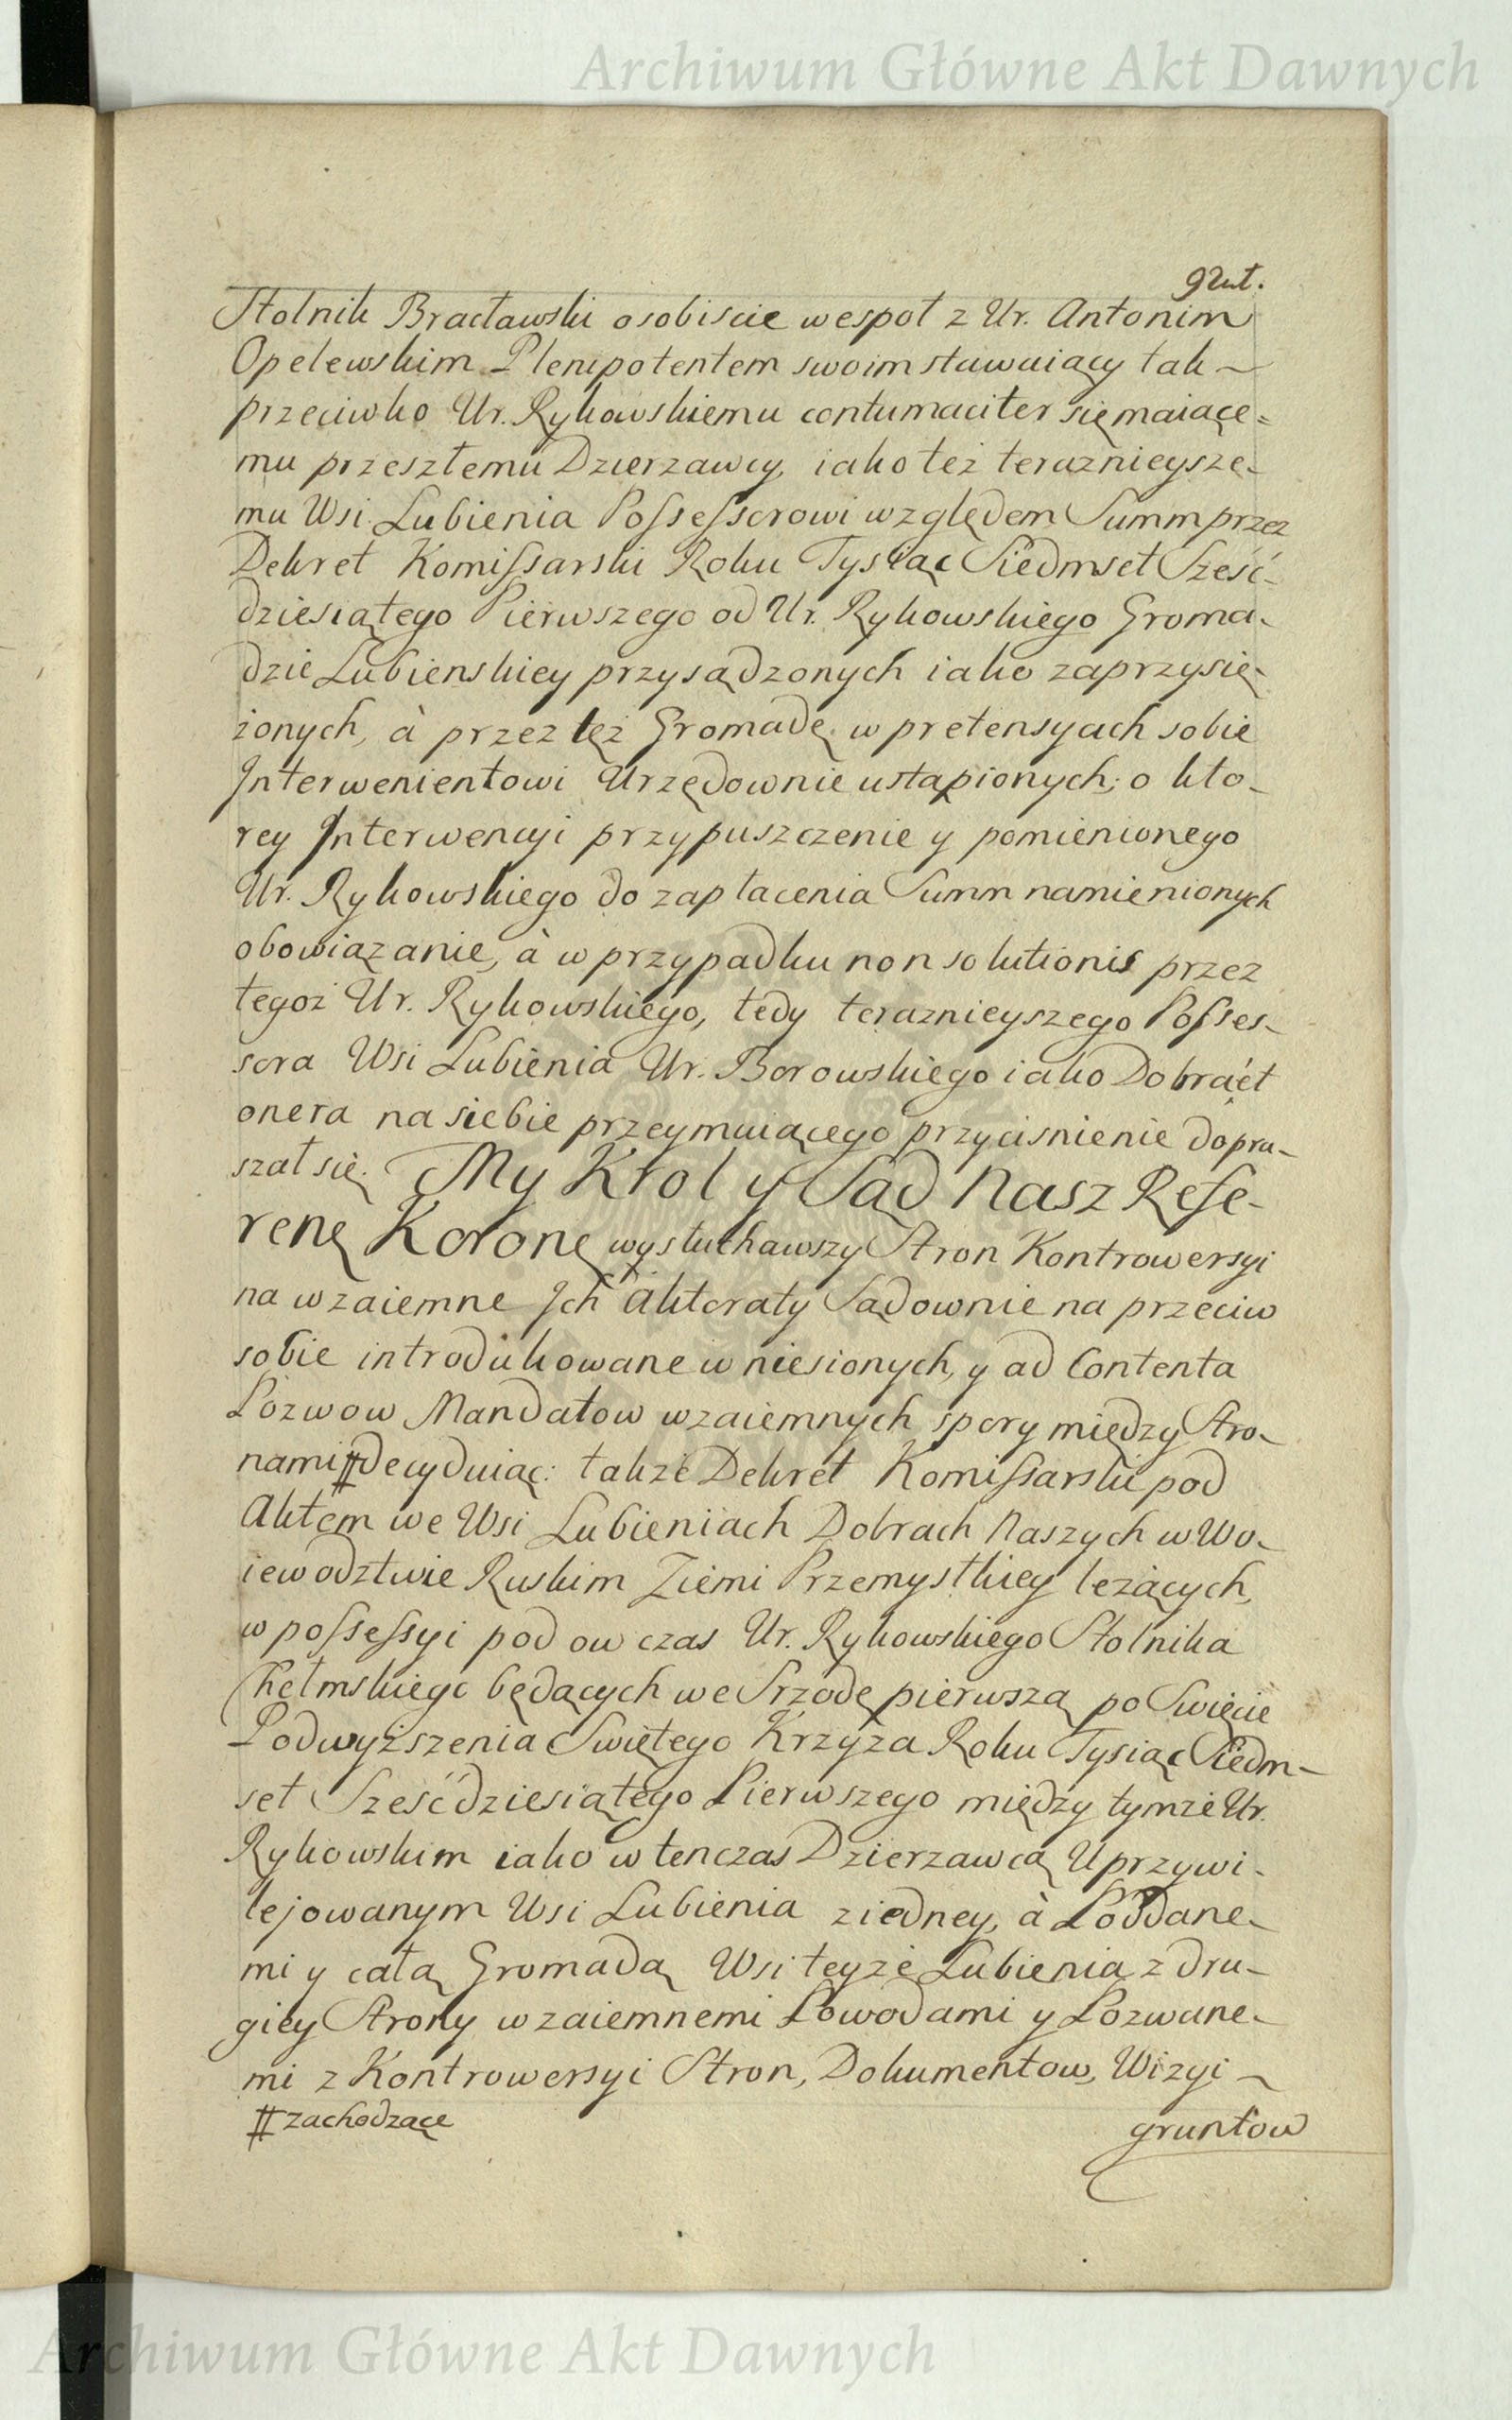 Archiwum Główne Akt Dawnych
Stolnik Bracławski osobiscie wespoł z Ur. Antonim
Opelewskim Plenipotentem swoim stawaiący tak
przeciwko Ur. Rykowskiemu contumaciter się maiące=
mu przeszłemu Dzierzawcy, iako też teraznieysze-
mu Wsi Lubienia Possessorowi względem Summ przez
Dekret Komissarski Roku Tysiąc Siedmset Sześć-
dziesiątego Pierwszego od Ur. Rykowskiego Groma-
dzie Lubienskiey przysądzonych iako zaprzysię-
żonych, à przez tęż Gromadę w pretensyach sobie
Interwenientowi Urzędownie ustąpionych; o kto-
rey Interwencyi przypuszczenie y pomienionego
Ur. Rykowskiego do zapłacenia Summ namienionych
obowiązanie, à w przypadku non solutionis przez
tegoż Ur. Rykowskiego, tedy teraznieyszego Posses-
sora Wsi Lubienia Ur. Borowskiego iako Dobra et
onera na siebie przeymuiącego przycisnienie dopra-
szał się. My Krol y Sąd Nasz Refe-
renę Koronę wysłuchawszy Stron Kontrowersyi
na wzaiemne Ich Aktoraty Sądownie na przeciw
sobie introdukowane wniesionych, y ad Contenta
Pozwow Mandatow wzaiemnych spory między Stro-
nami # decyduiąc: takze Dekret Komissarski pod
Aktem we Wsi Lubieniach Dobrach Naszych w Wo-
iewodztwie Ruskim Ziemi Przemyslkiey leżących,
w possessyi pod ow czas Ur. Rykowskiego Stolnika
Chełmskiego będących we Srzodę pierwszą po Swięcie
Podwyższenia Swiętego Krzyża Roku Tysiąc Siedm-
set Sześćdziesiątego Pierwszego między tymże Ur.
Rykowskim iako w tenczas Dzierzawcą Uprzywi-
lejowanym Wsi Lubienia z iedney, à Poddane-
mi y całą Gromadą Wsi teyże Lubienia z dru-
giey Strony wzaiemnemi Powodami y Pozwane-
mi z Kontrowersyi Stron, Dokumentow, Wizyi
# zachodzące
gruntow
Archiwum Główne Akt Dawnych